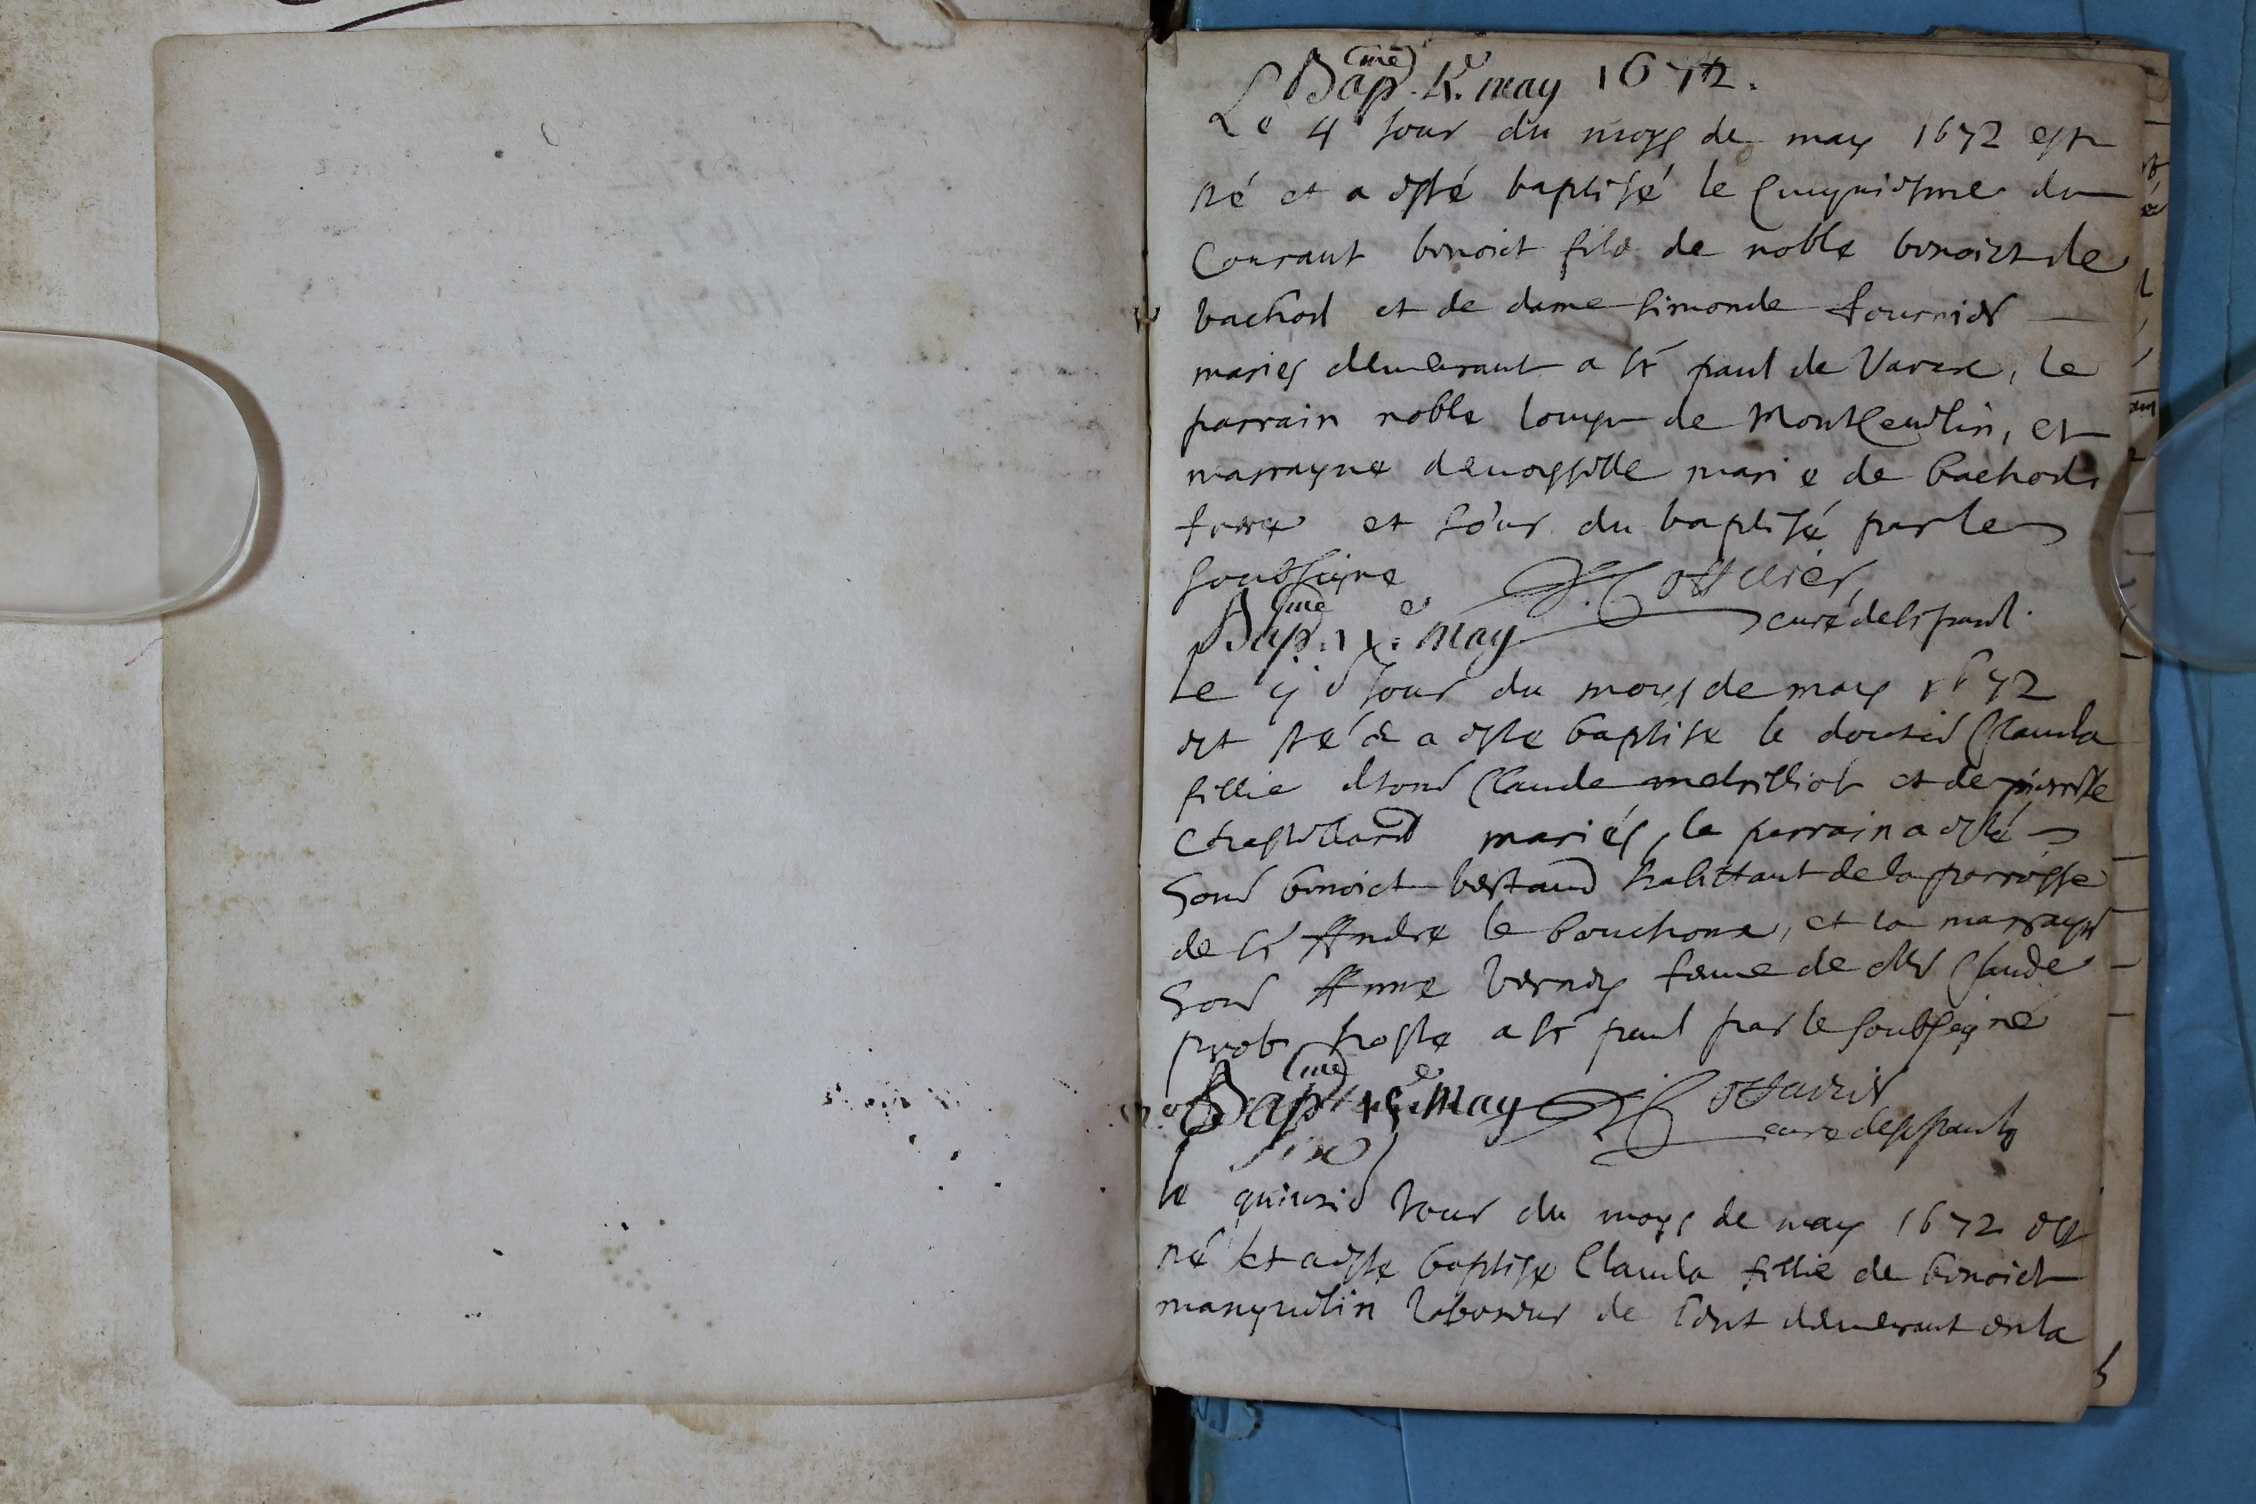 Bap(me). may 1672.
Le 4e jour du moys de may 1672 est
né et a esté baptisé le cinquiesme du
Courant benoict filz de noble benoict de
bachod et de dame simonde fournier
mariés demeurant a st paul de Varax, le
parrain noble louys de Mont, et
marrayne demoyselle marie de bachod
et soeur du baptisé par le
soubsigné
curé de st paul.
Bap(me). 11.e may
Le jour du moys de may 1672
est né & a este baptise le douzie Clauda
fillie d'hon Claude et de pierrette
mariés, le parrain a esté
hon benoict habittant de la parroisse
de st Andre le bouchoux, et la marrayne
hon Anne feme de Claude
hoste a st paul par le soubsigné
Bap(me) 15.e May
curé de st paul
le quinzie jour du moys de may 1672 est
né et a este baptise Clauda fillie de benoict
laboureur de demeurant en la